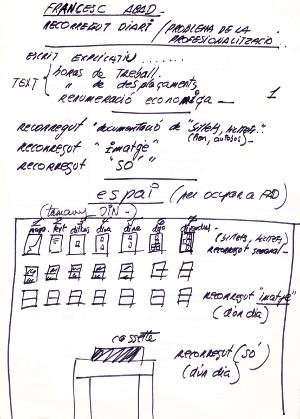 FRANCESC ABAD
RECORREGUT DIARI / PROBLEMA DE LA
PROFESIONALITZACIÓ
ESCRIT EXPLICATIU .......
TEXT { hores de Treball.
" de desplaçaments
remuneració económiga 1
RECORREGUT "documentació de "bitllets, tickets"..
(tren, autobús)
RECORREGUT "imatge"
RECORREGUT "SÓ"
espai (per ocupar a FAD)
(tamany DIN-)
(bitllets, tickets)
recorregut semanal-
RECORREGUT "imatge"
(d'ón día)
cassette
RECORREGUT (SÓ)
(d'ún día)